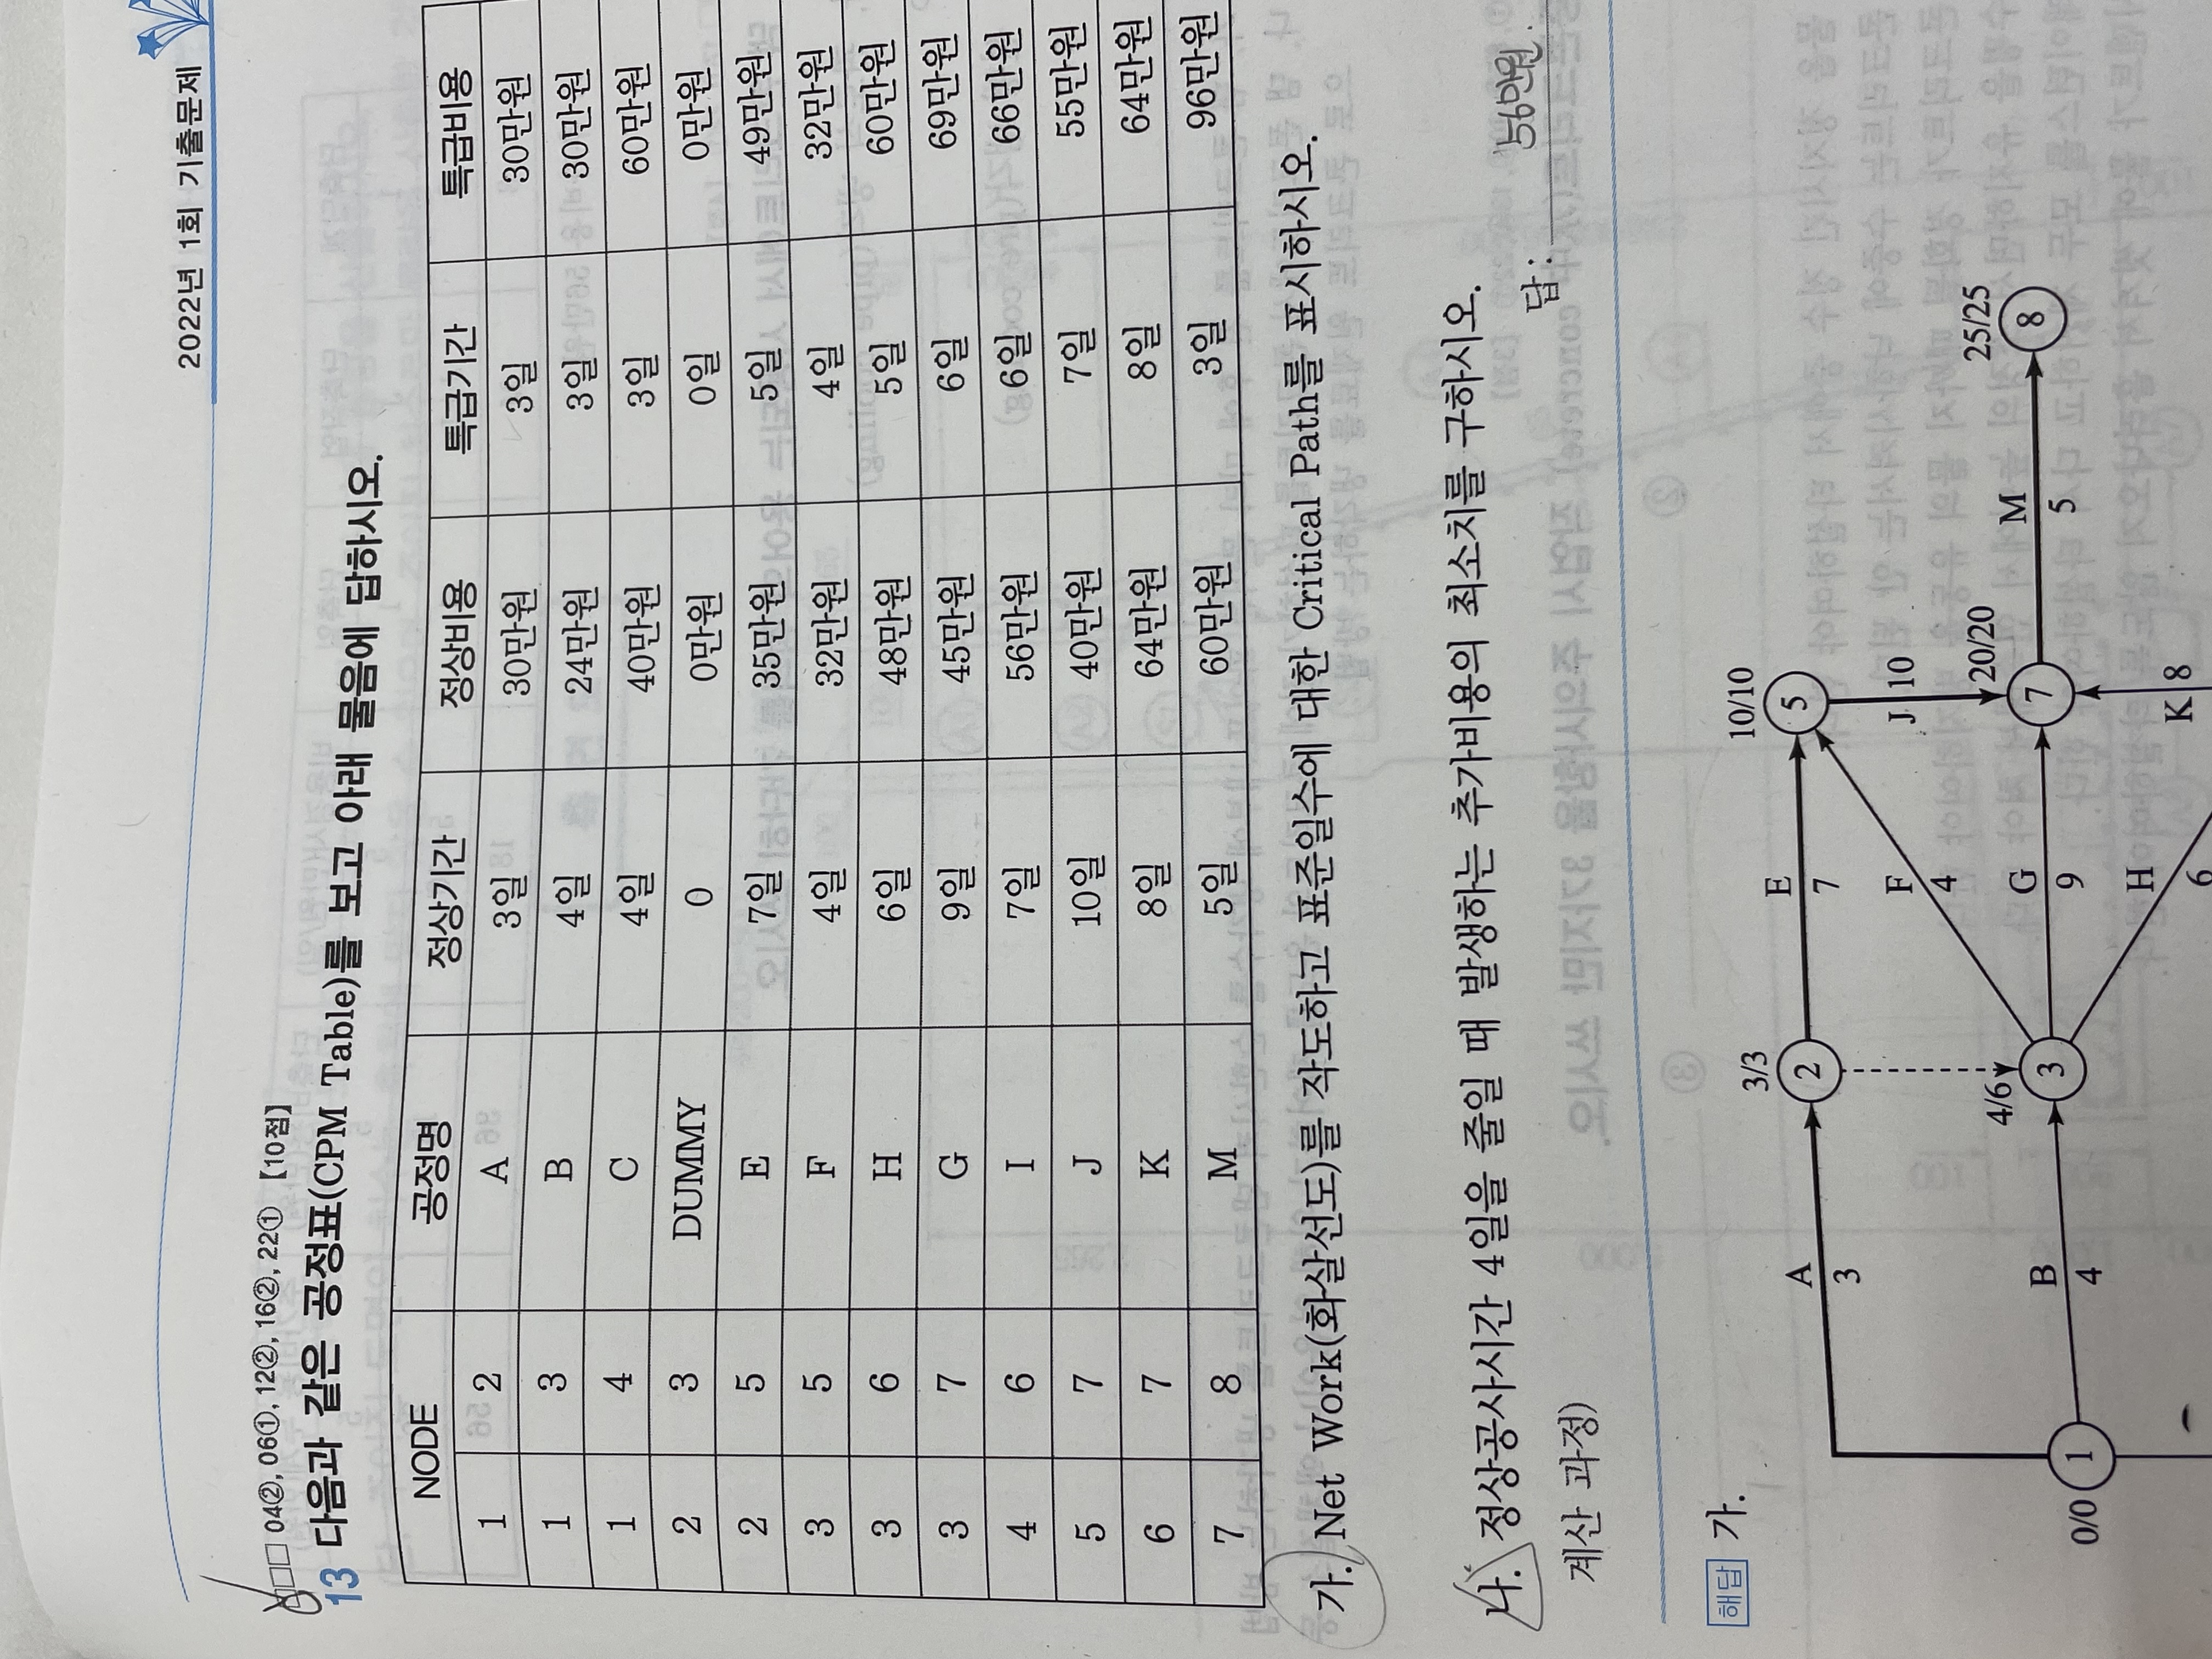 2022년 1회 기출문제
□□□ 04②, 06①, 12②, 16②, 22① 【10점】
13 다음과 같은 공정표(CPM Table)를 보고 아래 물음에 답하시오.
NODE 공정명 정상기간 정상비용 특급기간 특급비용
1 2 A 3일 30만원 3일 30만원
1 3 B 4일 24만원 3일 30만원
1 4 C 4일 40만원 3일 60만원
2 3 DUMMY 0 0만원 0일 0만원
2 5 E 7일 35만원 5일 49만원
3 5 F 4일 32만원 4일 32만원
3 6 H 6일 48만원 5일 60만원
3 7 G 9일 45만원 6일 69만원
4 6 I 7일 56만원 6일 66만원
5 7 J 10일 40만원 7일 55만원
6 7 K 8일 64만원 8일 64만원
7 8 M 5일 60만원 3일 96만원
가. Net Work(화살선도)를 작도하고 표준일수에 대한 Critical Path를 표시하시오.
나. 정상공사시간 4일을 줄일 때 발생하는 추가비용의 최소치를 구하시오.
계산 과정)
답 : 56만원
해답 가.
3/3
10/10
A
3
2
E
7
5
F
4
J
10
25/25
0/0
1
B
4
4/6
3
G
9
20/20
7
M
5
8
H
6
K
8